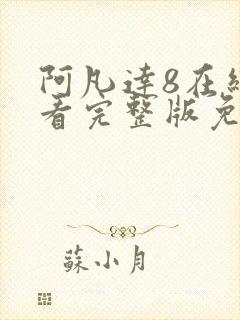 阿凡達8在
看完整版免
蘇小月